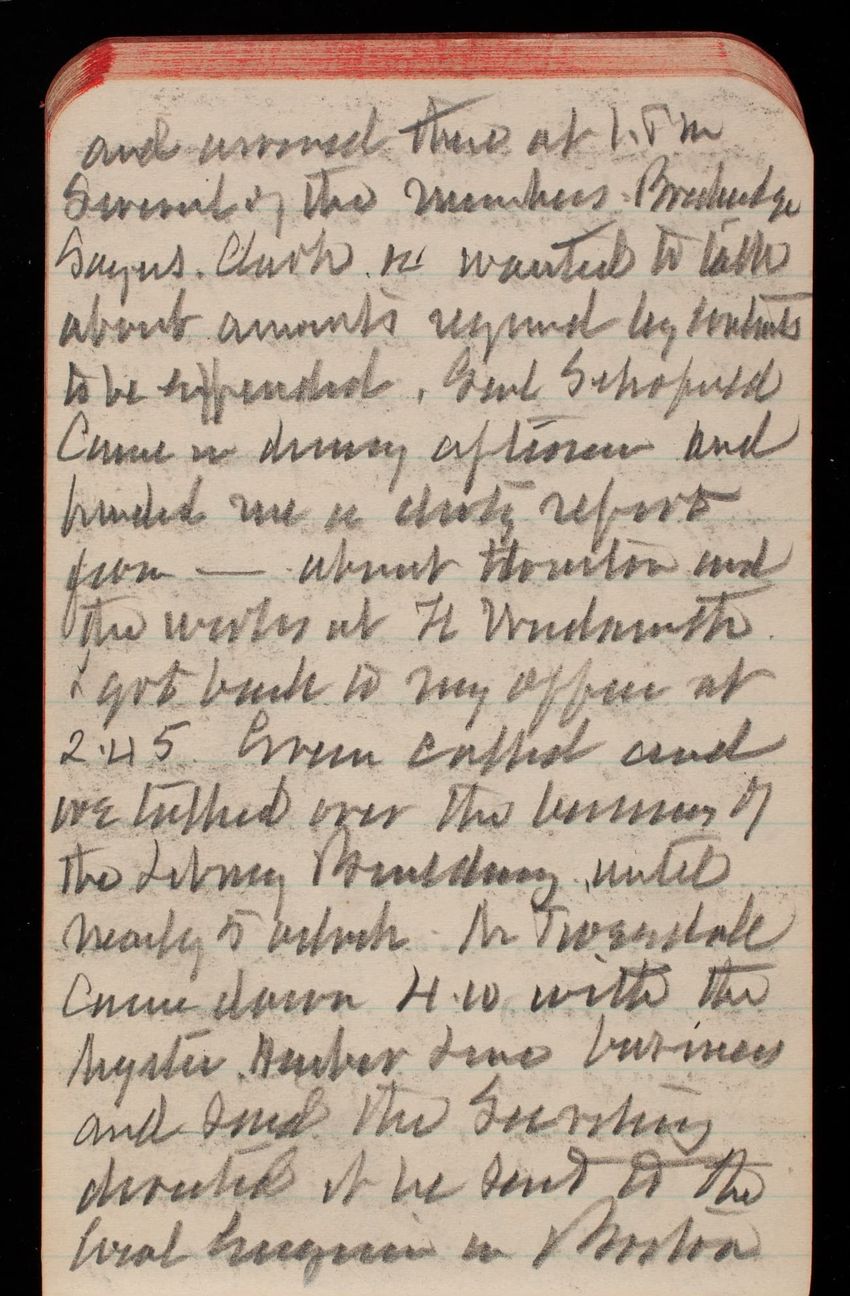 and arrived there at 1. P m
Several of the members. Breckridge
Sayers. Clark. &c wanted to talk
about amounts required by contracts
to be expended, Genl Schofield
Came in during afternoon and
handed me a dirty report
from — about Houston and
the works at Ft Wadsworth.
I got back to my office at
2.45. Green called and
we talked over the business of
the Library Building until
nearly 5 oclock. Mr Tweedale
came down 4.10 with the
Mystic Harbor Line business
and said the Secretary
directed it be sent to the
local Engineer in Boston